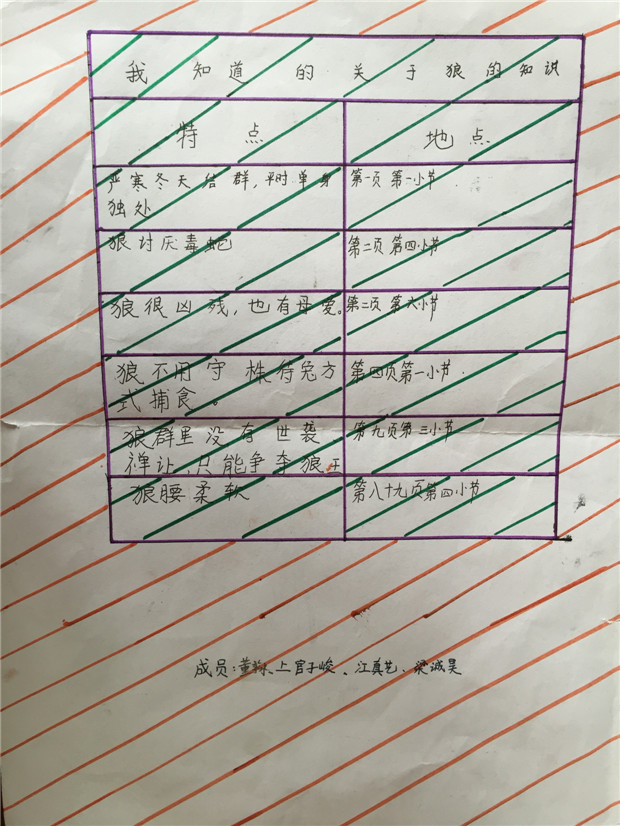 我知道的关于狼的知识
特点 地点
严寒冬天结群,平时单身 第一页第一小节.
独处
狼讨厌毒蛇 第二页第四小节
狼很凶残,也有母爱。 第二页第六小节
狼不用守株待兔方 第四页第一小节.
式捕食。
狼群里没有世袭 第九页第三小节
禅让,只能争夺狼王
狼腰柔软 第八十九页第四小节
成员:董 、上官子峻、江真艺、梁诚昊